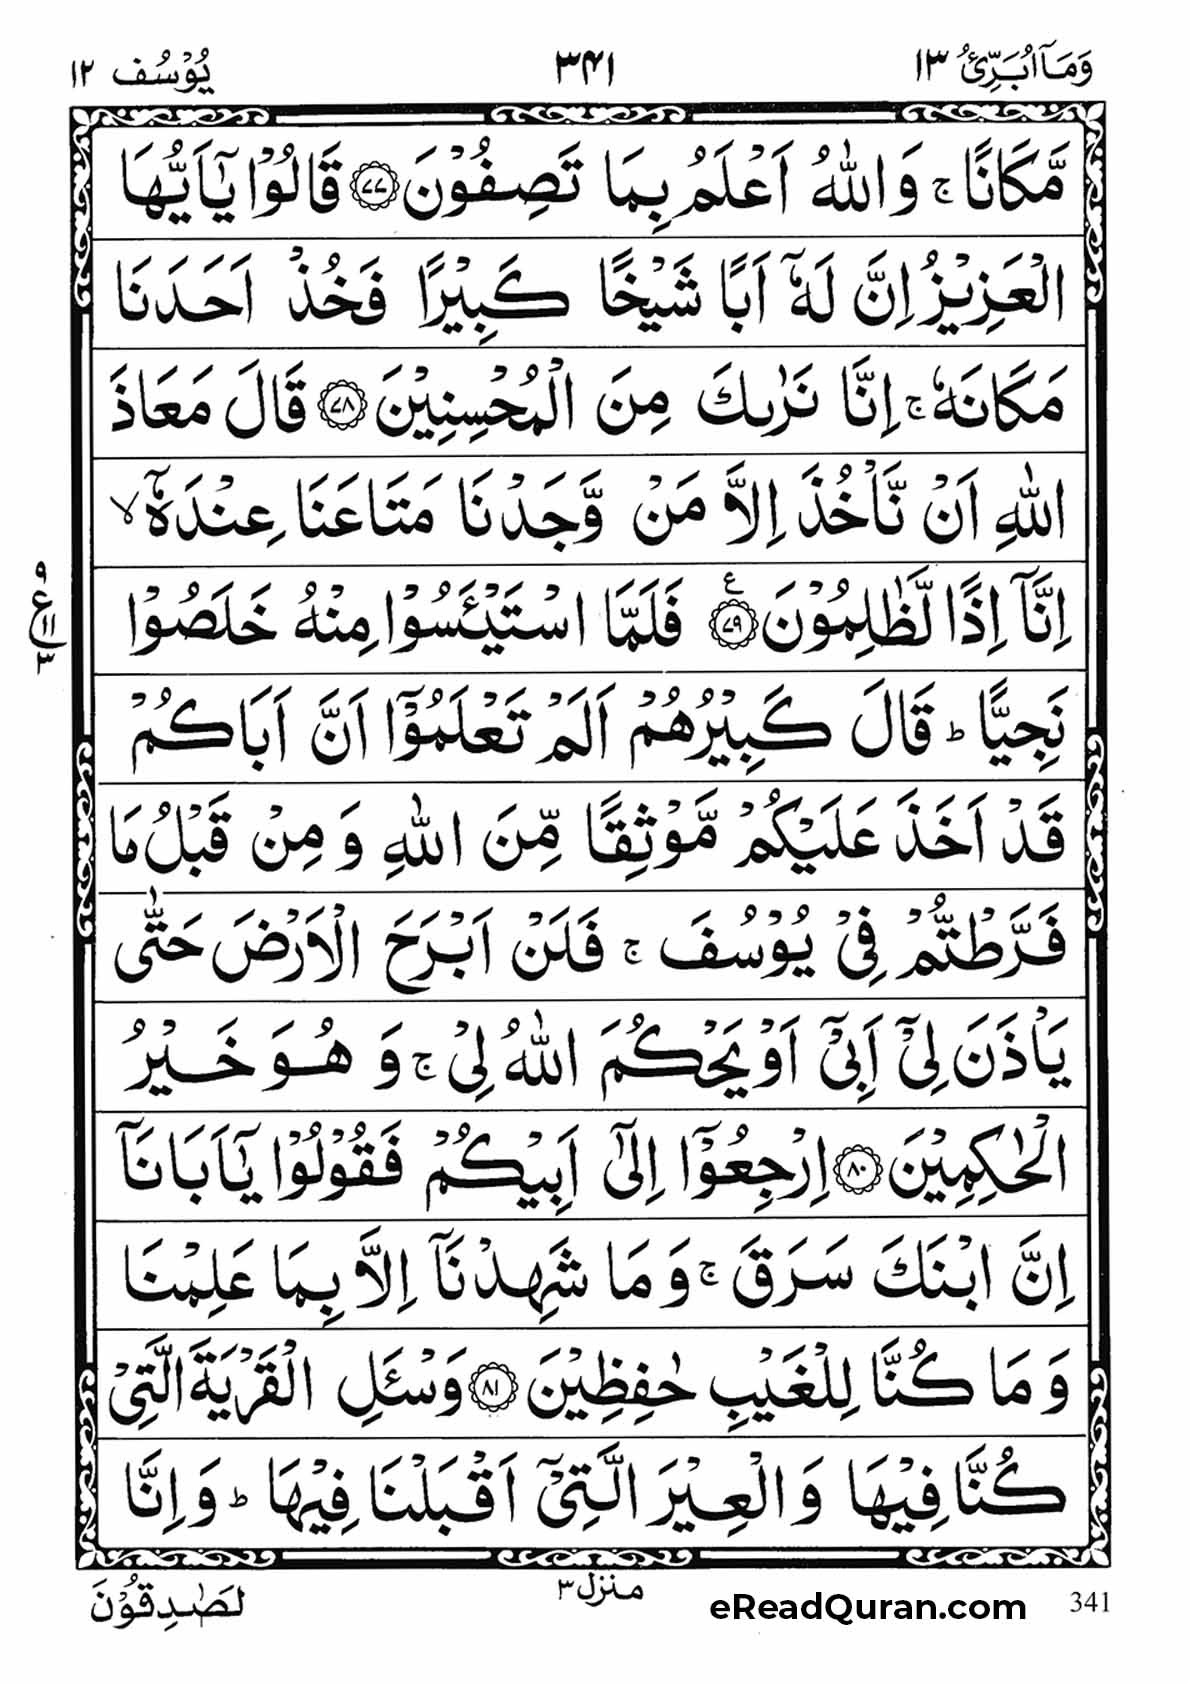 وَمَاۤ اُبَرِّئُ ۱۳
۳۴۱
يُوْسُف ۱۲
مَّكَانًا ۚ وَاللّٰهُ اَعْلَمُ بِمَا تَصِفُوْنَ ﴿۷۷﴾ قَالُوْا يٰۤاَيُّهَا
الْعَزِيْزُ اِنَّ لَهٗۤ اَبًا شَيْخًا كَبِيْرًا فَخُذْ اَحَدَنَا
مَكَانَهٗ ۚ اِنَّا نَرٰىكَ مِنَ الْمُحْسِنِيْنَ ﴿۷۸﴾ قَالَ مَعَاذَ
اللّٰهِ اَنْ نَّاْخُذَ اِلَّا مَنْ وَّجَدْنَا مَتَاعَنَا عِنْدَهٗۤ ۙ
اِنَّاۤ اِذًا لَّظٰلِمُوْنَ ﴿۷۹﴾ ع فَلَمَّا اسْتَيْـَٔسُوْا مِنْهُ خَلَصُوْا
۹
ع
۱۱
۳
نَجِيًّا ؕ قَالَ كَبِيْرُهُمْ اَلَمْ تَعْلَمُوْۤا اَنَّ اَبَاكُمْ
قَدْ اَخَذَ عَلَيْكُمْ مَّوْثِقًا مِّنَ اللّٰهِ وَ مِنْ قَبْلُ مَا
فَرَّطْتُّمْ فِيْ يُوْسُفَ ۚ فَلَنْ اَبْرَحَ الْاَرْضَ حَتّٰى
يَاْذَنَ لِيْۤ اَبِيْۤ اَوْ يَحْكُمَ اللّٰهُ لِيْ ۚ وَ هُوَ خَيْرُ
الْحٰكِمِيْنَ ﴿۸۰﴾ اِرْجِعُوْۤا اِلٰۤى اَبِيْكُمْ فَقُوْلُوْا يٰۤاَبَانَاۤ
اِنَّ ابْنَكَ سَرَقَ ۚ وَ مَا شَهِدْنَاۤ اِلَّا بِمَا عَلِمْنَا
وَ مَا كُنَّا لِلْغَيْبِ حٰفِظِيْنَ ﴿۸۱﴾ وَسْـَٔلِ الْقَرْيَةَ الَّتِيْ
كُنَّا فِيْهَا وَ الْعِيْرَ الَّتِيْۤ اَقْبَلْنَا فِيْهَا ؕ وَ اِنَّا
لَصٰدِقُوْنَ
منزل ۳
eReadQuran.com
341